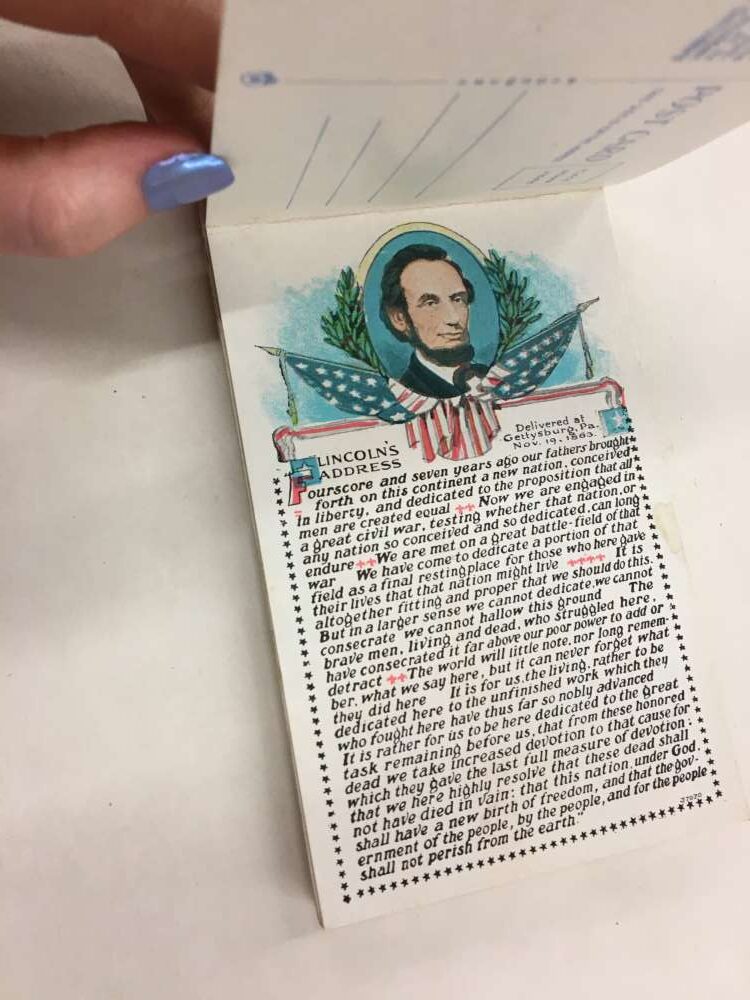 POST CARD
LINCOLN'S
ADDRESS
Delivered at
Gettysburg, Pa.
Nov. 19, 1863.
Fourscore and seven years ago our fathers brought
forth on this continent a new nation, conceived
in liberty, and dedicated to the proposition that all
men are created equal ++ Now we are engaged in
a great civil war, testing whether that nation, or
any nation so conceived and so dedicated, can long
endure ++ We are met on a great battle-field of that
war We have come to dedicate a portion of that
field as a final resting place for those who here gave
their lives that that nation might live ++++ It is
altogether fitting and proper that we should do this.
But in a larger sense we cannot dedicate, we cannot
consecrate we cannot hallow this ground The
brave men, living and dead, who struggled here,
have consecrated it far above our poor power to add or
detract ++ The world will little note, nor long remem-
ber, what we say here, but it can never forget what
they did here It is for us, the living, rather to be
dedicated here to the unfinished work which they
who fought here have thus far so nobly advanced
It is rather for us to be here dedicated to the great
task remaining before us, that from these honored
dead we take increased devotion to that cause for
which they gave the last full measure of devotion;
that we here highly resolve that these dead shall
not have died in vain: that this nation, under God,
shall have a new birth of freedom, and that the gov-
ernment of the people, by the people, and for the people
shall not perish from the earth."